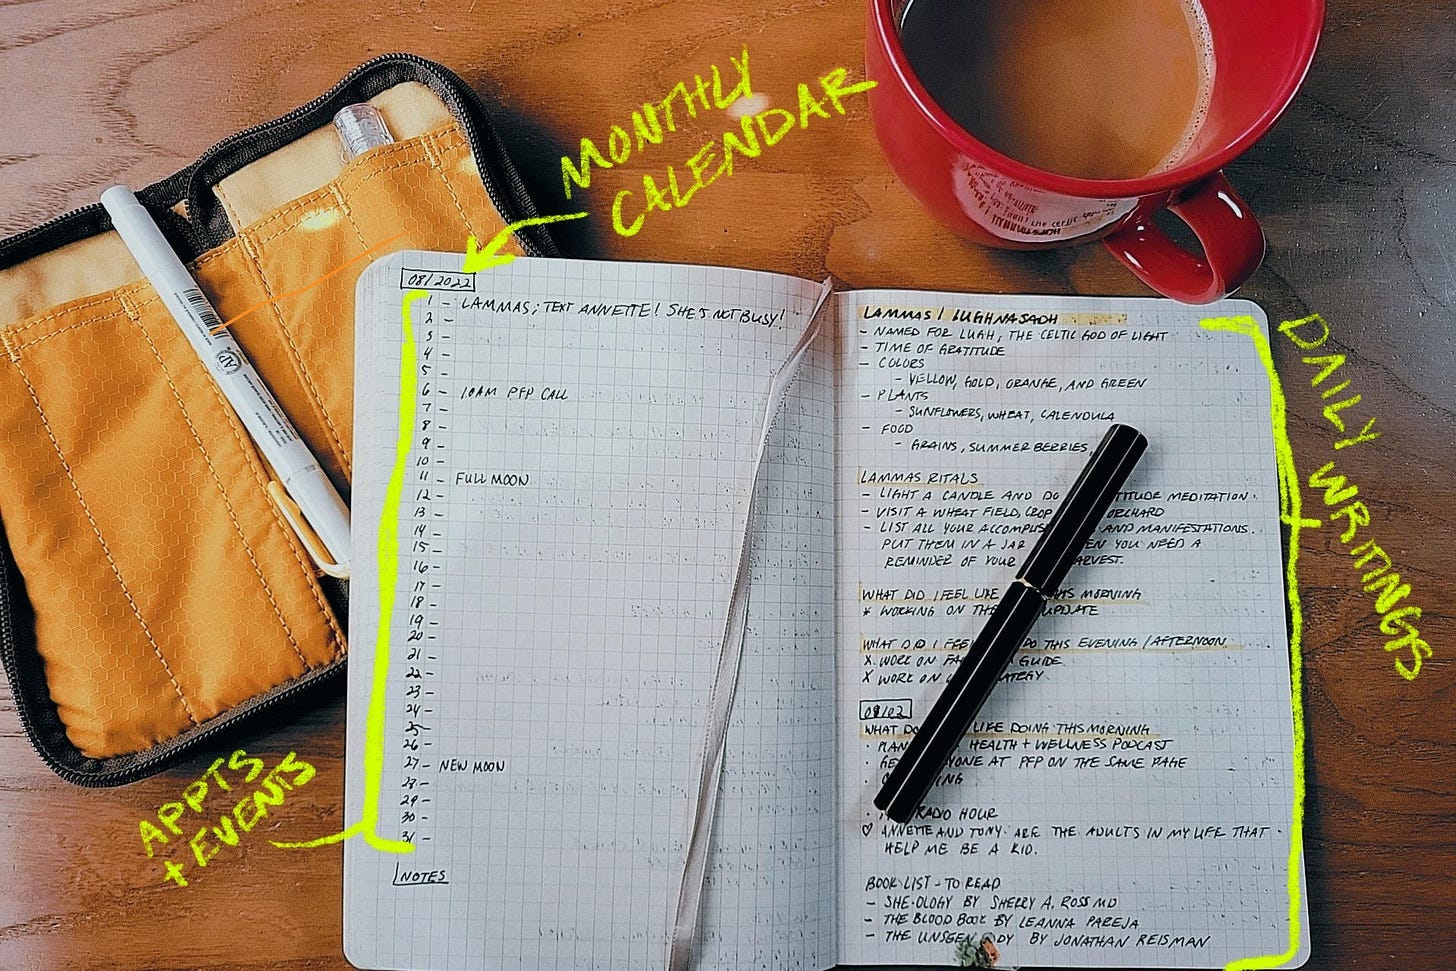 MONTHLY
CALENDAR
08/2022
1 - LAMMAS; TEXT ANNETTE! SHE'S NOT BUSY!
2 -
3 -
4 -
5 -
6 - 10AM PFP CALL
7 -
8 -
9 -
10 -
11 - FULL MOON
12 -
13 -
14 -
15 -
16 -
17 -
18 -
19 -
20 -
21 -
22 -
23 -
24 -
25 -
26 -
27 - NEW MOON
28 -
29 -
30 -
31 -
NOTES
APPTS
+ EVENTS
LAMMAS / LUGHNASADH
- NAMED FOR LUGH, THE CELTIC GOD OF LIGHT
- TIME OF GRATITUDE
- COLORS
- YELLOW, GOLD, ORANGE, AND GREEN
- PLANTS
- SUNFLOWERS, WHEAT, CALENDULA
- FOOD
- GRAINS, SUMMER BERRIES,
LAMMAS RITALS
- LIGHT A CANDLE AND DO TITUDE MEDITATION.
- VISIT A WHEAT FIELD, CROP ORCHARD
- LIST ALL YOUR ACCOMPLIS AND MANIFESTATIONS.
PUT THEM IN A JAR EN YOU NEED A
REMINDER OF YOUR HARVEST.
WHAT DID I FEEL LIKE THIS MORNING
* WORKING ON THE UPDATE
WHAT DID I FEEL DO THIS EVENING / AFTERNOON
X WORK ON FA GUIDE
X WORK ON TEGY
08/02
WHAT DO LIKE DOING THIS MORNING
· PLAN HEALTH + WELLNESS PODCAST
· GE YONE AT PFP ON THE SAME PAGE
· C NG
· RADIO HOUR
♡ ANNETTE AND TONY ARE THE ADULTS IN MY LIFE THAT
HELP ME BE A KID.
BOOK LIST - TO READ
- SHE-OLOGY BY SHERRY A. ROSS MD
- THE BLOOD BOOK BY LEANNA PAREJA
- THE UNSEEN BODY BY JONATHAN REISMAN
DAILY WRITINGS